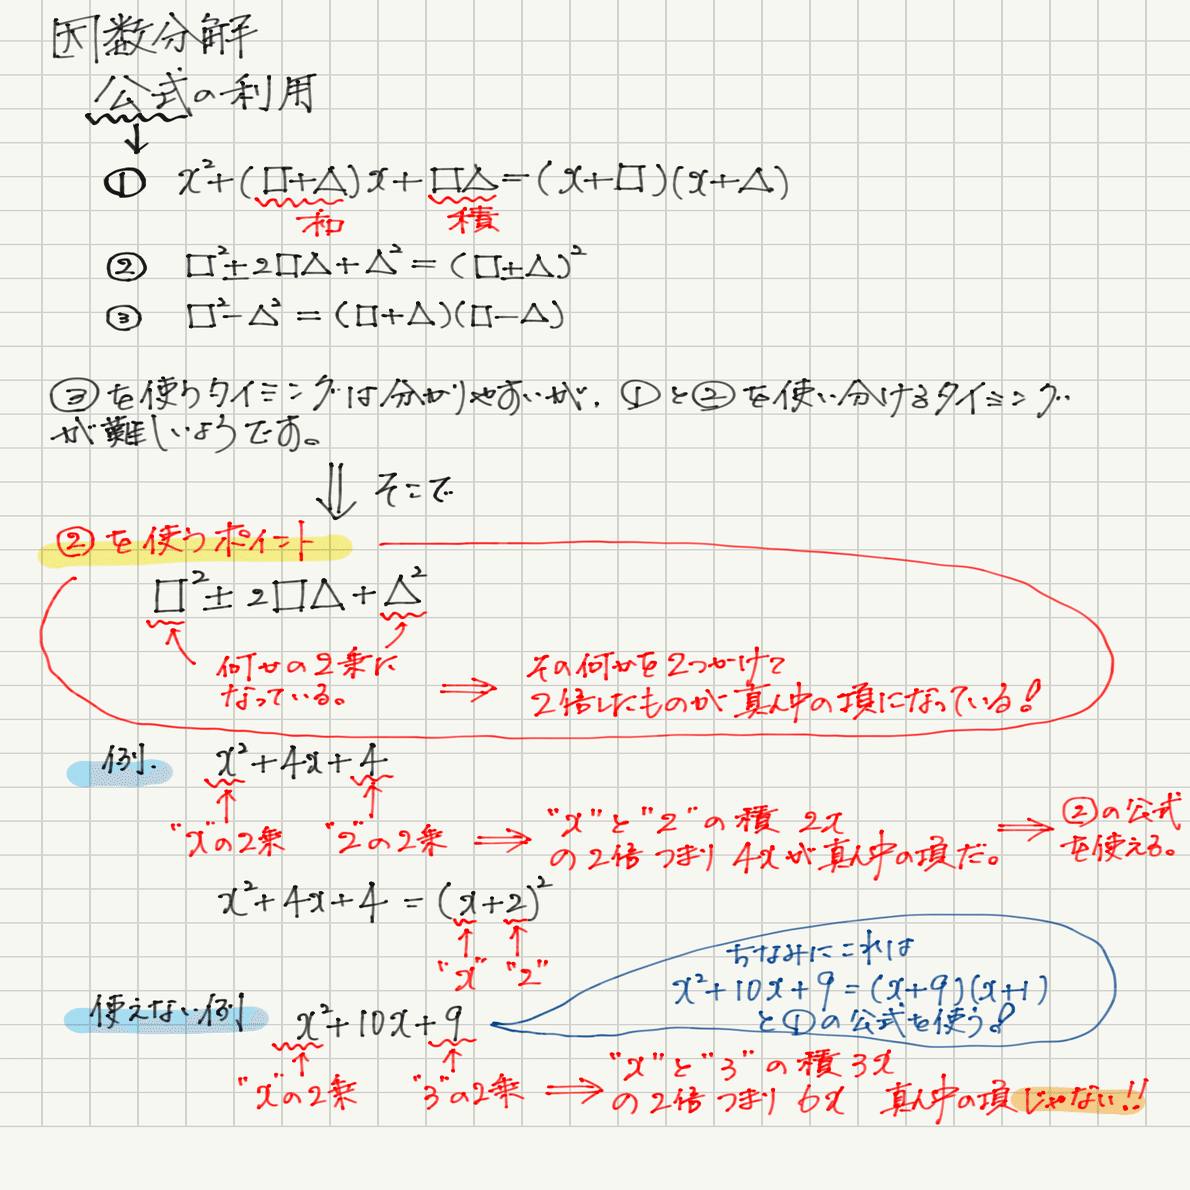 因数分解
公式の利用
① x²+(□+△)x+□△=(x+□)(x+△)
和 積
② □²±2□△+△²=(□±△)²
③ □²-△²=(□+△)(□-△)
③を使うタイミングは分かりやすいが、①と②を使い分けるタイミング
が難しいようです。
そこで
②を使うポイント
□²±2□△+△²
何かの2乗に
なっている。
その何かを2つかけて
2倍したものが真ん中の項になっている!
例. x²+4x+4
"x"の2乗 "2"の2乗
"x"と"2"の積 2x
の2倍 つまり 4xが真ん中の項だ。
②の公式
を使える。
x²+4x+4=(x+2)²
"x" "2"
使えない例 x²+10x+9
ちなみにこれは
x²+10x+9=(x+9)(x+1)
と①の公式を使う!
"x"の2乗 "3"の2乗
"x"と"3"の積 3x
の2倍 つまり 6x 真ん中の項じゃない!!